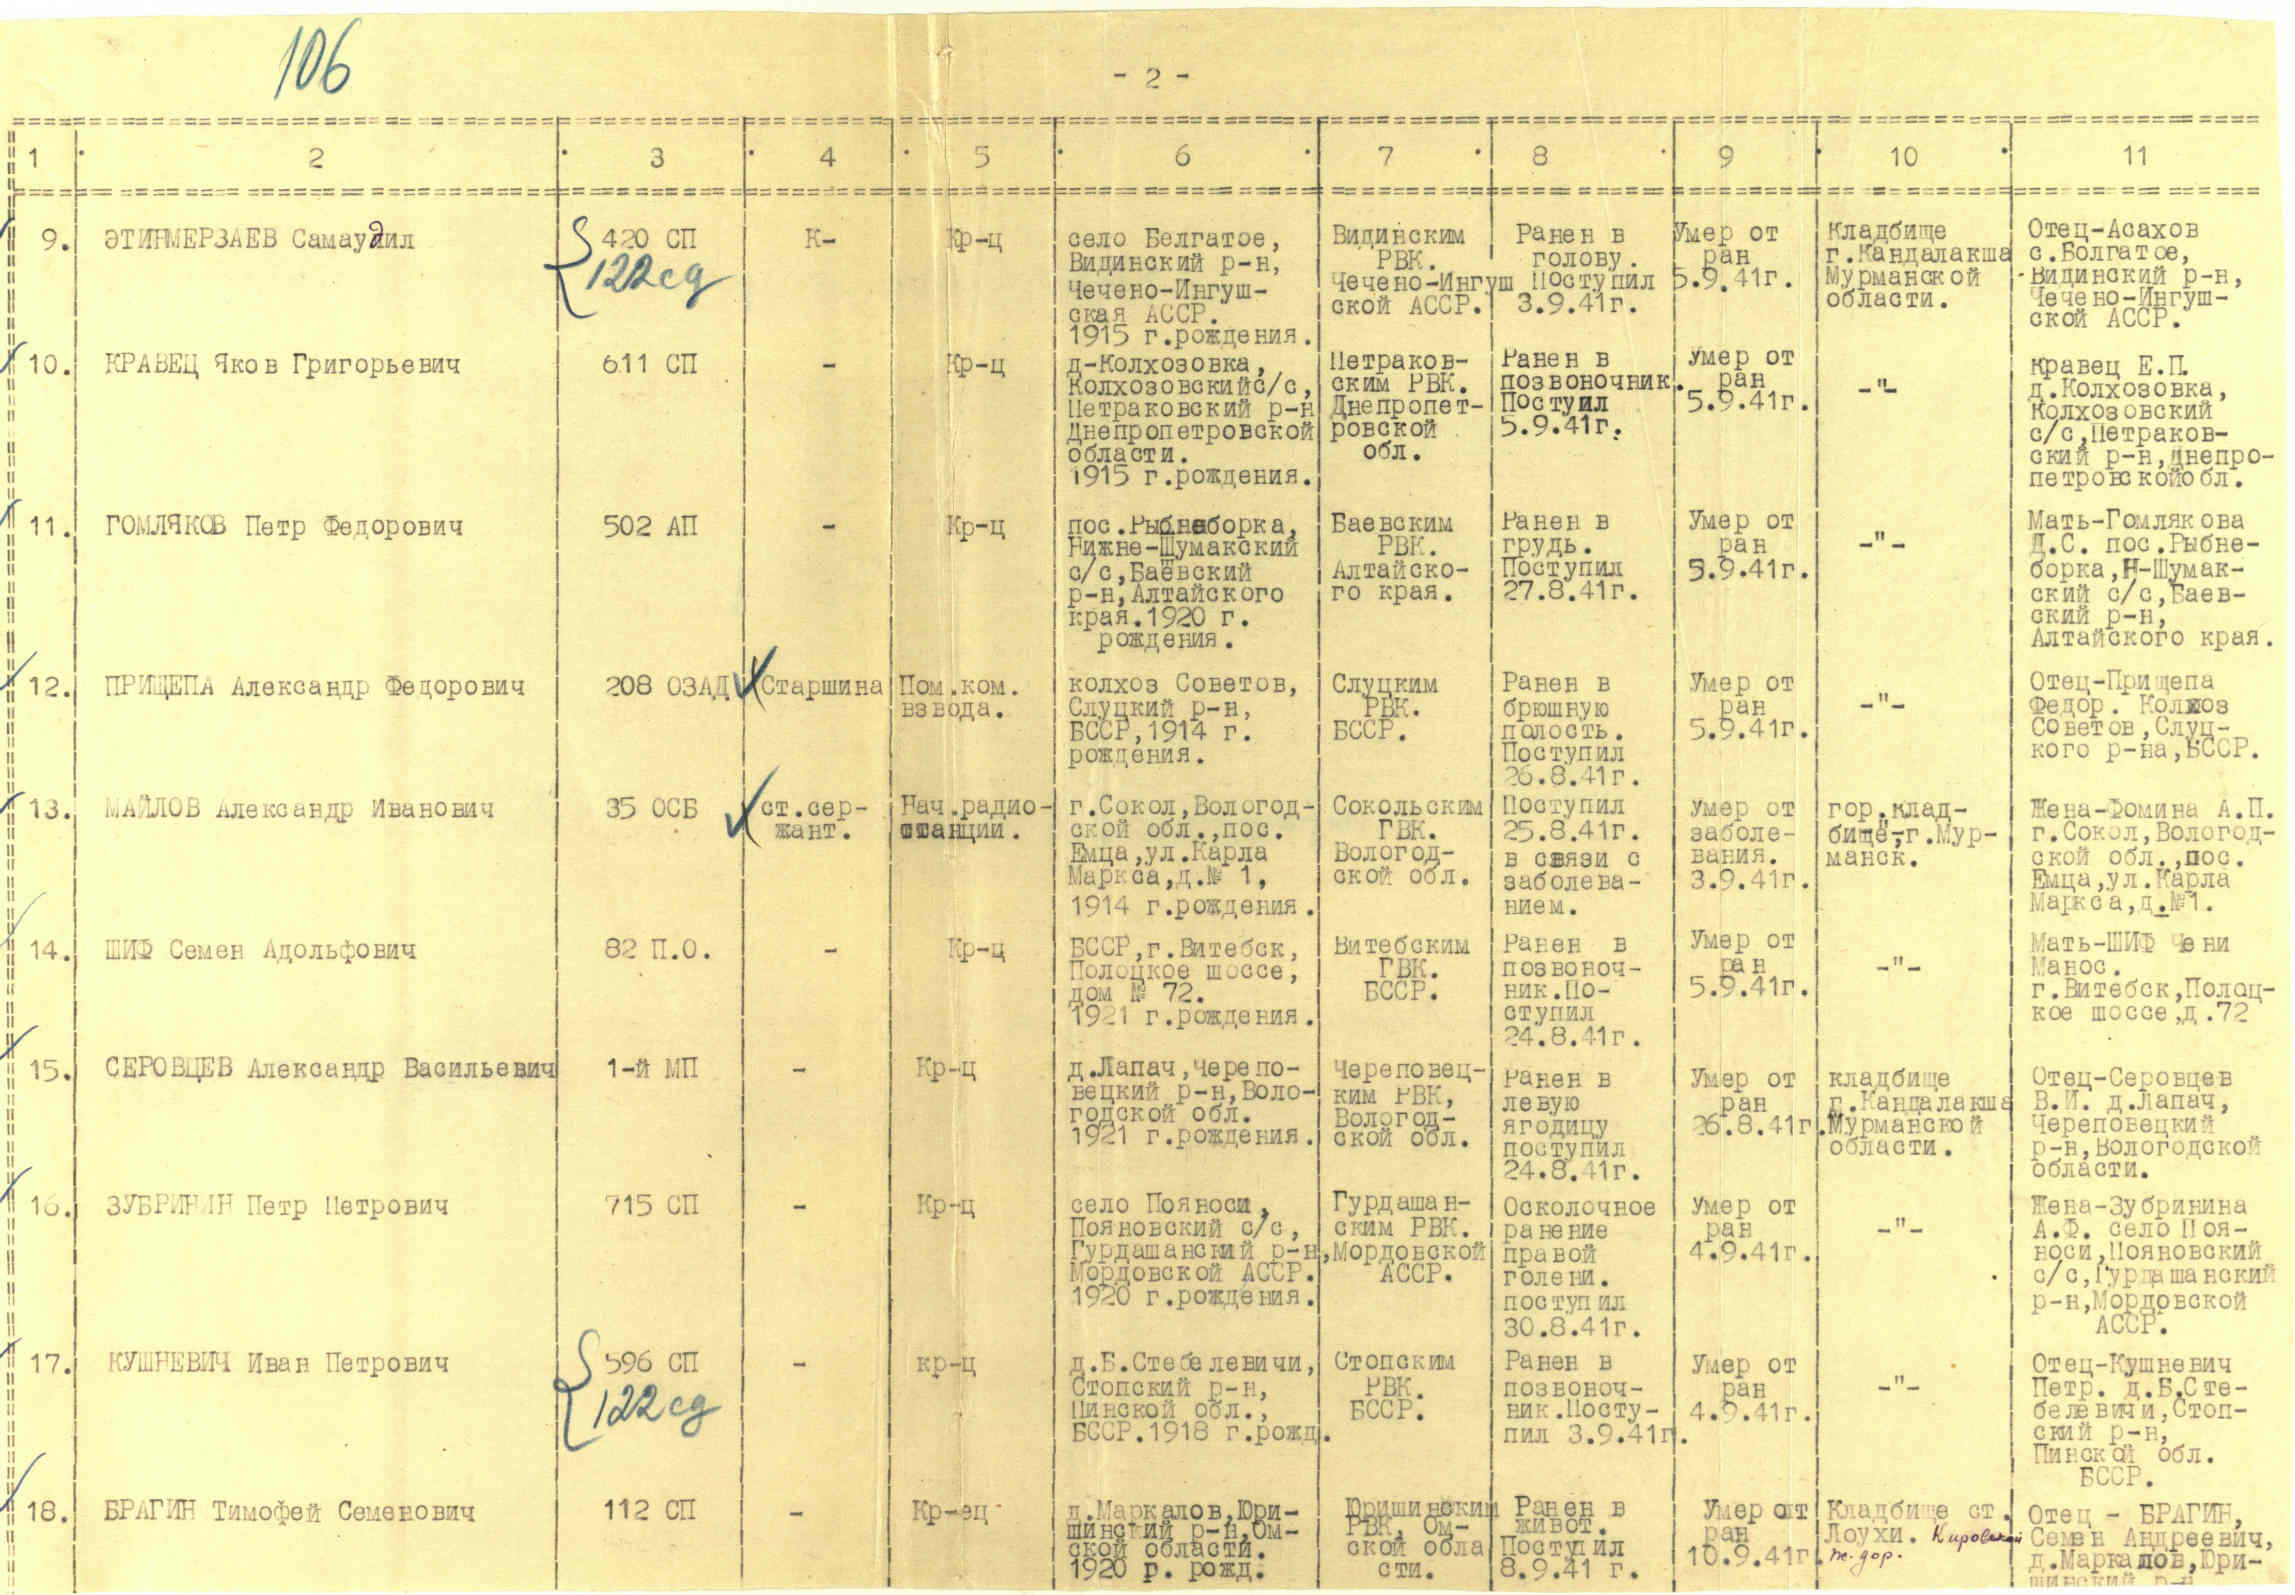 106
- 2 -
1 2 3 4 5 6 7 8 9 10 11
9. ЭТИНМЕРЗАЕВ Самаудил
420 СП
122 сд
К-
Кр-ц
село Белгатое,
Видинский р-н,
Чечено-Ингуш-
ская АССР.
1915 г.рождения.
Видинским
РВК.
Чечено-Ингуш
ской АССР.
Ранен в
голову.
Поступил
3.9.41г.
Умер от
ран
5.9.41г.
Кладбище
г.Кандалакша
Мурманской
области.
Отец-Асахов
с.Болгатое,
Видинский р-н,
Чечено-Ингуш-
ской АССР.
10. КРАВЕЦ Яков Григорьевич
611 СП
-
Кр-ц
д-Колхозовка,
Колхозовскийс/с,
Петраковский р-н
Днепропетровской
области.
1915 г.рождения.
Петраков-
ским РВК.
Днепропет-
ровской
обл.
Ранен в
позвоночник.
Постуил
5.9.41г.
Умер от
ран
5.9.41г.
-"-
Кравец Е.П.
д.Колхозовка,
Колхозовский
с/с,Петраков-
ский р-н,Днепро-
петровскойобл.
11. ГОМЛЯКОВ Петр Федорович
502 АП
-
Кр-ц
пос.Рыбнеборка,
Нижне-Шумакский
с/с,Баевский
р-н,Алтайского
края.1920 г.
рождения.
Баевским
РВК.
Алтайско-
го края.
Ранен в
грудь.
Поступил
27.8.41г.
Умер от
ран
3.9.41г.
-"-
Мать-Гомлякова
Д.С. пос.Рыбне-
борка,Н-Шумак-
ский с/с,Баев-
ский р-н,
Алтайского края.
12. ПРИЩЕПА Александр Федорович
208 ОЗАД
Старшина
Пом.ком.
взвода.
колхоз Советов,
Слуцкий р-н,
БССР,1914 г.
рождения.
Слуцким
РВК.
БССР.
Ранен в
брюшную
полость.
Поступил
26.8.41г.
Умер от
ран
5.9.41г.
-"-
Отец-Прищепа
Федор. Колхоз
Советов,Слуц-
кого р-на,БССР.
13. МАЙЛОВ Александр Иванович
35 ОСБ
ст.сер-
жант.
Нач.радио-
станции.
г.Сокол,Вологод-
ской обл.,пос.
Емца,ул.Карла
Маркса,д.№ 1,
1914 г.рождения.
Сокольским
ГВК.
Вологод-
ской обл.
Поступил
25.8.41г.
в связи с
заболева-
нием.
Умер от
заболе-
вания.
3.9.41г.
гор.клад-
бище,г.Мур-
манск.
Жена-Фомина А.П.
г.Сокол,Вологод-
ской обл.,пос.
Емца,ул.Карла
Маркса,д.№1.
14. ШИФ Семен Адольфович
82 П.О.
-
Кр-ц
БССР,г.Витебск,
Полоцкое шоссе,
дом № 72.
1921 г.рождения.
Витебским
ГВК.
БССР.
Ранен в
позвоноч-
ник.По-
ступил
24.8.41г.
Умер от
ран
5.9.41г.
-"-
Мать-ШИФ Чени
Манос.
г.Витебск,Полоц-
кое шоссе,д.72
15. СЕРОВЦЕВ Александр Васильевич
1-й МП
-
Кр-ц
д.Лапач,Черепо-
вецкий р-н,Воло-
годской обл.
1921 г.рождения.
Череповец-
ким РВК,
Вологод-
ской обл.
Ранен в
левую
ягодицу
поступил
24.8.41г.
Умер от
ран
26.8.41г.
кладбище
г.Кандалакша
Мурманской
области.
Отец-Серовцев
В.И. д.Лапач,
Череповецкий
р-н,Вологодской
области.
16. ЗУБРИНИН Петр Петрович
715 СП
-
Кр-ц
село Пояноси,
Пояновский с/с,
Гурдашанский р-н,
Мордовской АССР.
1920 г.рождения.
Гурдашан-
ским РВК.
Мордовской
АССР.
Осколочное
ранение
правой
голени.
поступил
30.8.41г.
Умер от
ран
4.9.41г.
-"-
Жена-Зубринина
А.Ф. село Поя-
носи,Пояновский
с/с,Гурдашанский
р-н,Мордовской
АССР.
17. КУШНЕВИЧ Иван Петрович
596 СП
122 сд
-
кр-ц
д.Б.Стебелевичи,
Стопский р-н,
Пинской обл.,
БССР.1918 г.рожд.
Стопским
РВК.
БССР.
Ранен в
позвоноч-
ник.Посту-
пил 3.9.41г.
Умер от
ран
4.9.41г.
-"-
Отец-Кушневич
Петр. д.Б.Сте-
белевичи,Стоп-
ский р-н,
Пинской обл.
БССР.
18. БРАГИН Тимофей Семенович
112 СП
-
Кр-ец
д.Маркалов,Юри-
шинский р-н,Ом-
ской области.
1920 г. рожд.
Юришинским
РВК, Ом-
ской обла
сти.
Ранен в
живот.
Поступил
8.9.41 г.
Умер от
ран
10.9.41г.
Кладбище ст.
Лоухи. Кировской
ж.дор.
Отец - БРАГИН,
Семен Андреевич,
д.Маркалов,Юри-
шинский р-н